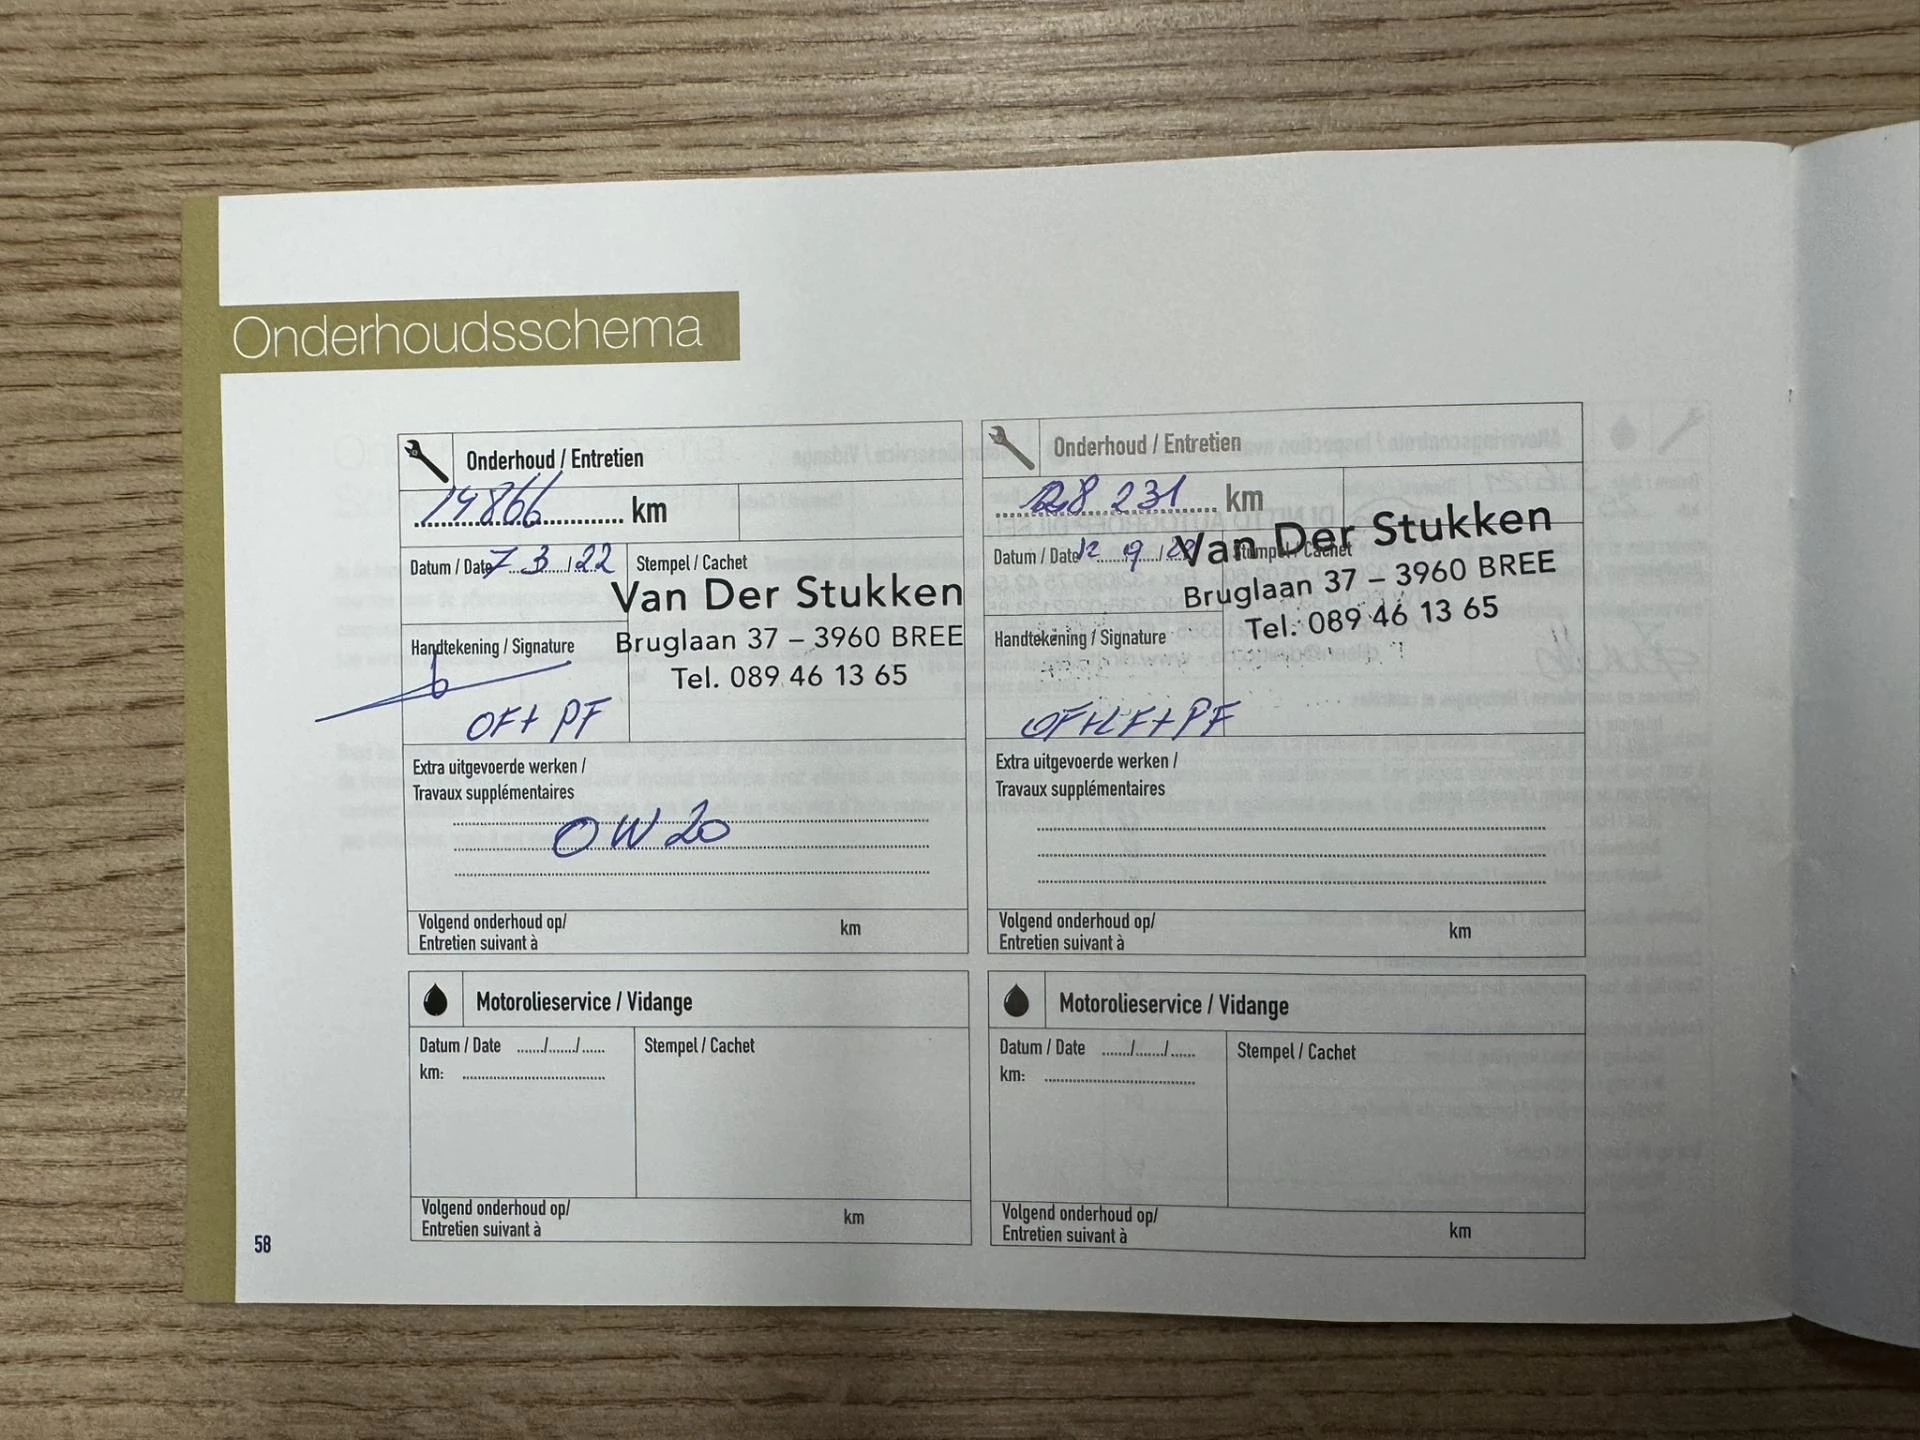 Onderhoudsschema
Onderhoud / Entretien
19866 km
Datum / Date 7 3 / 22
Stempel / Cachet
Van Der Stukken
Bruglaan 37 – 3960 BREE
Tel. 089 46 13 65
Handtekening / Signature
OF+ PF
Extra uitgevoerde werken /
Travaux supplémentaires
0W20
Volgend onderhoud op/
Entretien suivant à
km
Motorolieservice / Vidange
Datum / Date ....../....../......
Stempel / Cachet
km:
Volgend onderhoud op/
Entretien suivant à
km
Onderhoud / Entretien
28 231 km
Datum / Date 12 9 /
Stempel / Cachet
Van Der Stukken
Bruglaan 37 – 3960 BREE
Tel. 089 46 13 65
Handtekening / Signature
OF+LF+PF
Extra uitgevoerde werken /
Travaux supplémentaires
Volgend onderhoud op/
Entretien suivant à
km
Motorolieservice / Vidange
Datum / Date ....../....../......
Stempel / Cachet
km:
Volgend onderhoud op/
Entretien suivant à
km
58